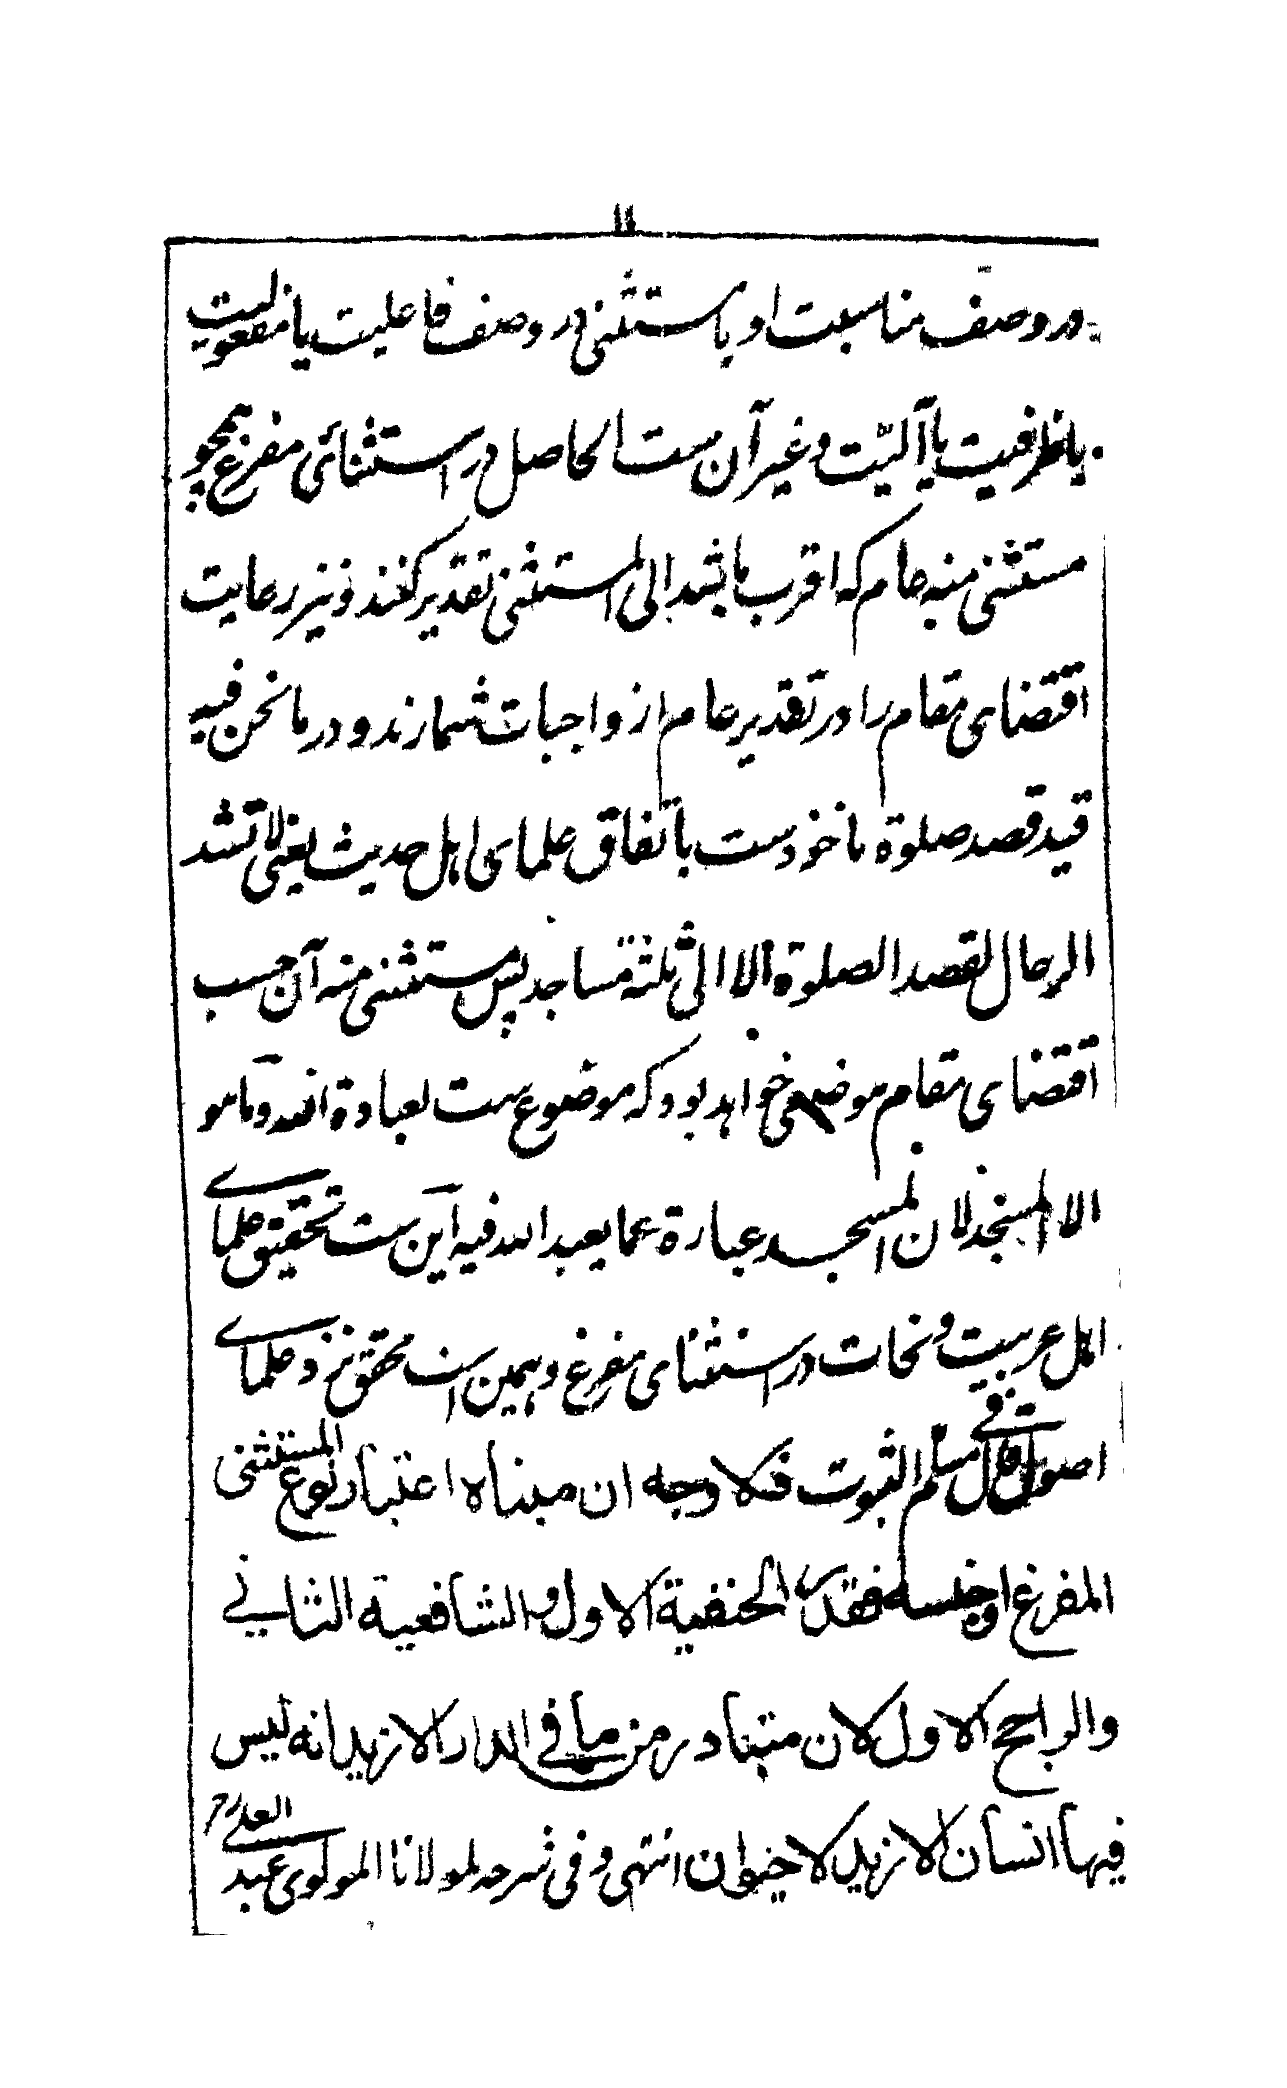 ۱۱
در وصف مناسبت او با مستثنی در وصف فاعلیت یا مفعولیت
یا ظرفیت یا آلیّت و غیر آن ست الحاصل در استثنائی مفرغ همچو
مستثنی منه عام که اقرب باشد الی المستثنی تقدیر کنند و نیز رعایت
اقتضای مقام را در تقدیر عام از واجبات شمارند و در ما نحن فیه
قید قصد صلوة ماخوذ ست باتفاق علمای اهل حدیث یعنی لا تشد
الرحال لقصد الصلوة الا الی ثلثة مساجد پس مستثنی منه آن حسب
اقتضای مقام موضعی خواهد بود که موضوع ست لعبادة الله و ما هو
الا المسجد لان المسجد عبارة عما یعبد الله فیه این ست تحقیق علمای
اهل عربیت و نحات در استثنای مفرغ و همین است محقق نزد علمای
اصول قال فی مسلم الثبوت فكلا وجه ان مبناه اعتبار نوع المستثنی
المفرغ او جنسه فقدر الحنفية الاول و الشافعية الثاني
والراجح الاول لان متبادر من ما في الدار الا زيد انه ليس
فيها انسان الا زيد لا حيوان انتهى و فی شرحه لمولانا المولوی عبد العلی